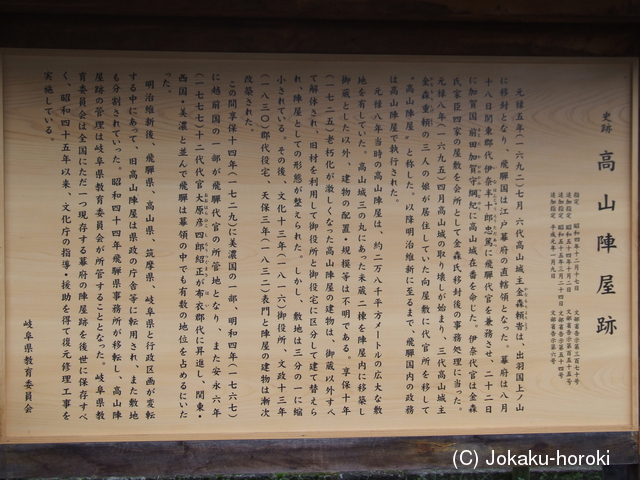 史跡 高山陣屋跡
指定 昭和四年十二月十七日
元禄五年（一六九二）七月 六代高山城主金森頼旹は、出羽国上ノ山
に移封となり、飛騨国は江戸幕府の直轄領となった。幕府は八月
十八日関東郡代伊奈半十郎忠篤に飛騨代官を兼務させ、二十二日
に加賀国前田加賀守綱紀に高山城在番を命じた。伊奈代官は金森
氏家臣四家の屋敷を会所として金森氏移封後の事務処理に当った。
元禄八年（一六九五）四月高山城の取り壊しが始まり、三代高山城主
金森重頼の三人の娘が居住していた向屋敷に代官所を移して
“高山陣屋”と称した。以降明治維新に至るまで、飛騨国内の政務
は高山陣屋で執行された。
元禄八年当時の高山陣屋は、約二万八千平方メートルの広大な敷
地を有していた。高山城三の丸にあった米蔵二棟を陣屋内に移築し
御蔵とした以外、建物の配置・規模等は不明である。享保十年
（一七二五）老朽化が激しくなった高山陣屋の建物は、御蔵以外すべ
て解体され、旧材を利用して御役所と御役宅に区分して建て替えら
れ、陣屋としての形態が整えられた。しかし、敷地は三分の一に縮
小されている。その後、文化十三年（一八一六）御役所、文政十三年
（一八三〇）郡代役宅、天保三年（一八三二）表門と陣屋の建物は漸次
改築された。
この間享保十四年（一七二九）に美濃国の一部、明和四年（一七六七）
に越前国の一部が飛騨代官の所管地となり、また安永六年
（一七七七）十二代代官大原彦四郎紹正が布衣郡代に昇進し、関東・
西国・美濃と並んで飛騨は幕領の中でも有数の地位を占めるにいた
った。
明治維新後、飛騨県、高山県、筑摩県、岐阜県と行政区画が変転
する中にあって、旧高山陣屋は県政の庁舎等に転用され、また敷地
も分割されていった。昭和四十四年飛騨県事務所が移転し、高山陣
屋跡の管理は岐阜県教育委員会が所管することとなった。岐阜県教
育委員会は全国にただ一つ現存する幕府の陣屋跡を後世に保存すべ
く、昭和四十五年以来、文化庁の指導・援助を得て復元修理工事を
実施している。
岐阜県教育委員会
(C) Jokaku-horoki